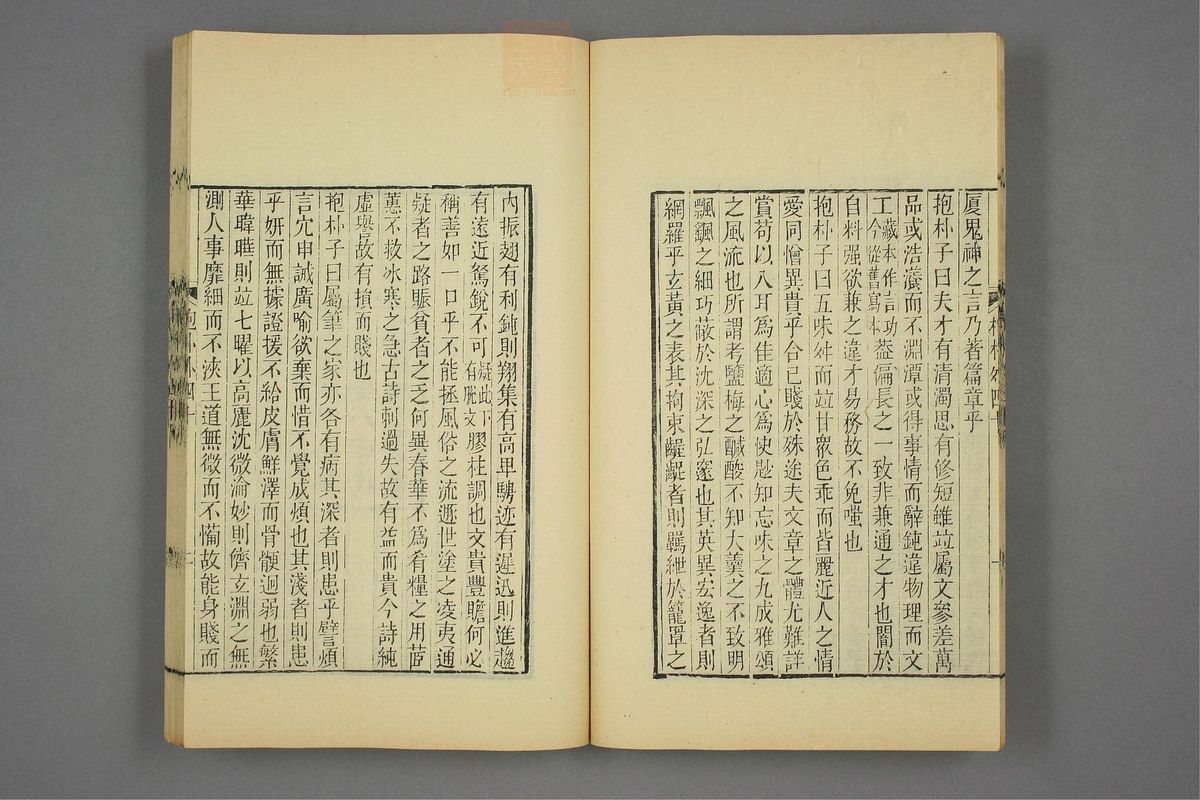 厦鬼神之言乃著篇章乎
抱朴子曰夫才有清濁思有修短雖竝屬文參差萬
品或浩瀁而不淵潭或得事情而辭鈍違物理而文
工藏本作言功今從舊寫本葢偏長之一致非兼通之才也闇於
自料强欲兼之違才易務故不免嗤也
抱朴子曰五味舛而竝甘衆色乖而皆麗近人之情
愛同憎異貴乎合己賤於殊途夫文章之體尤難詳
賞苟以入耳爲佳適心爲快尟知忘味之九成雅頌
之風流也所謂考鹽梅之醎酸不知大羹之不致明
飄颻之細巧蔽於沈深之弘邃也其英異宏逸者則
網羅乎玄黃之表其拘束齷齪者則羈紲於籠罩之
內振翅有利鈍則翔集有高卑騁迹有遲迅則進趨
有遠近駑銳不可疑此下有脫文膠柱調也文貴豐贍何必
稱善如一口乎不能拯風俗之流遯世塗之凌夷通
疑者之路賑貧者之乏何異春華不爲肴糧之用茝
蕙不救冰寒之急古詩刺過失故有益而貴今詩純
虛譽故有損而賤也
抱朴子曰屬筆之家亦各有病其深者則患乎譬煩
言冗申誡廣喻欲棄而惜不覺成煩也其淺者則患
乎妍而無據證援不給皮膚鮮澤而骨骾迥弱也繁
華暐曄則竝七曜以高麗沈微淪妙則儕玄淵之無
測人事靡細而不浹王道無微而不備故能身賤而